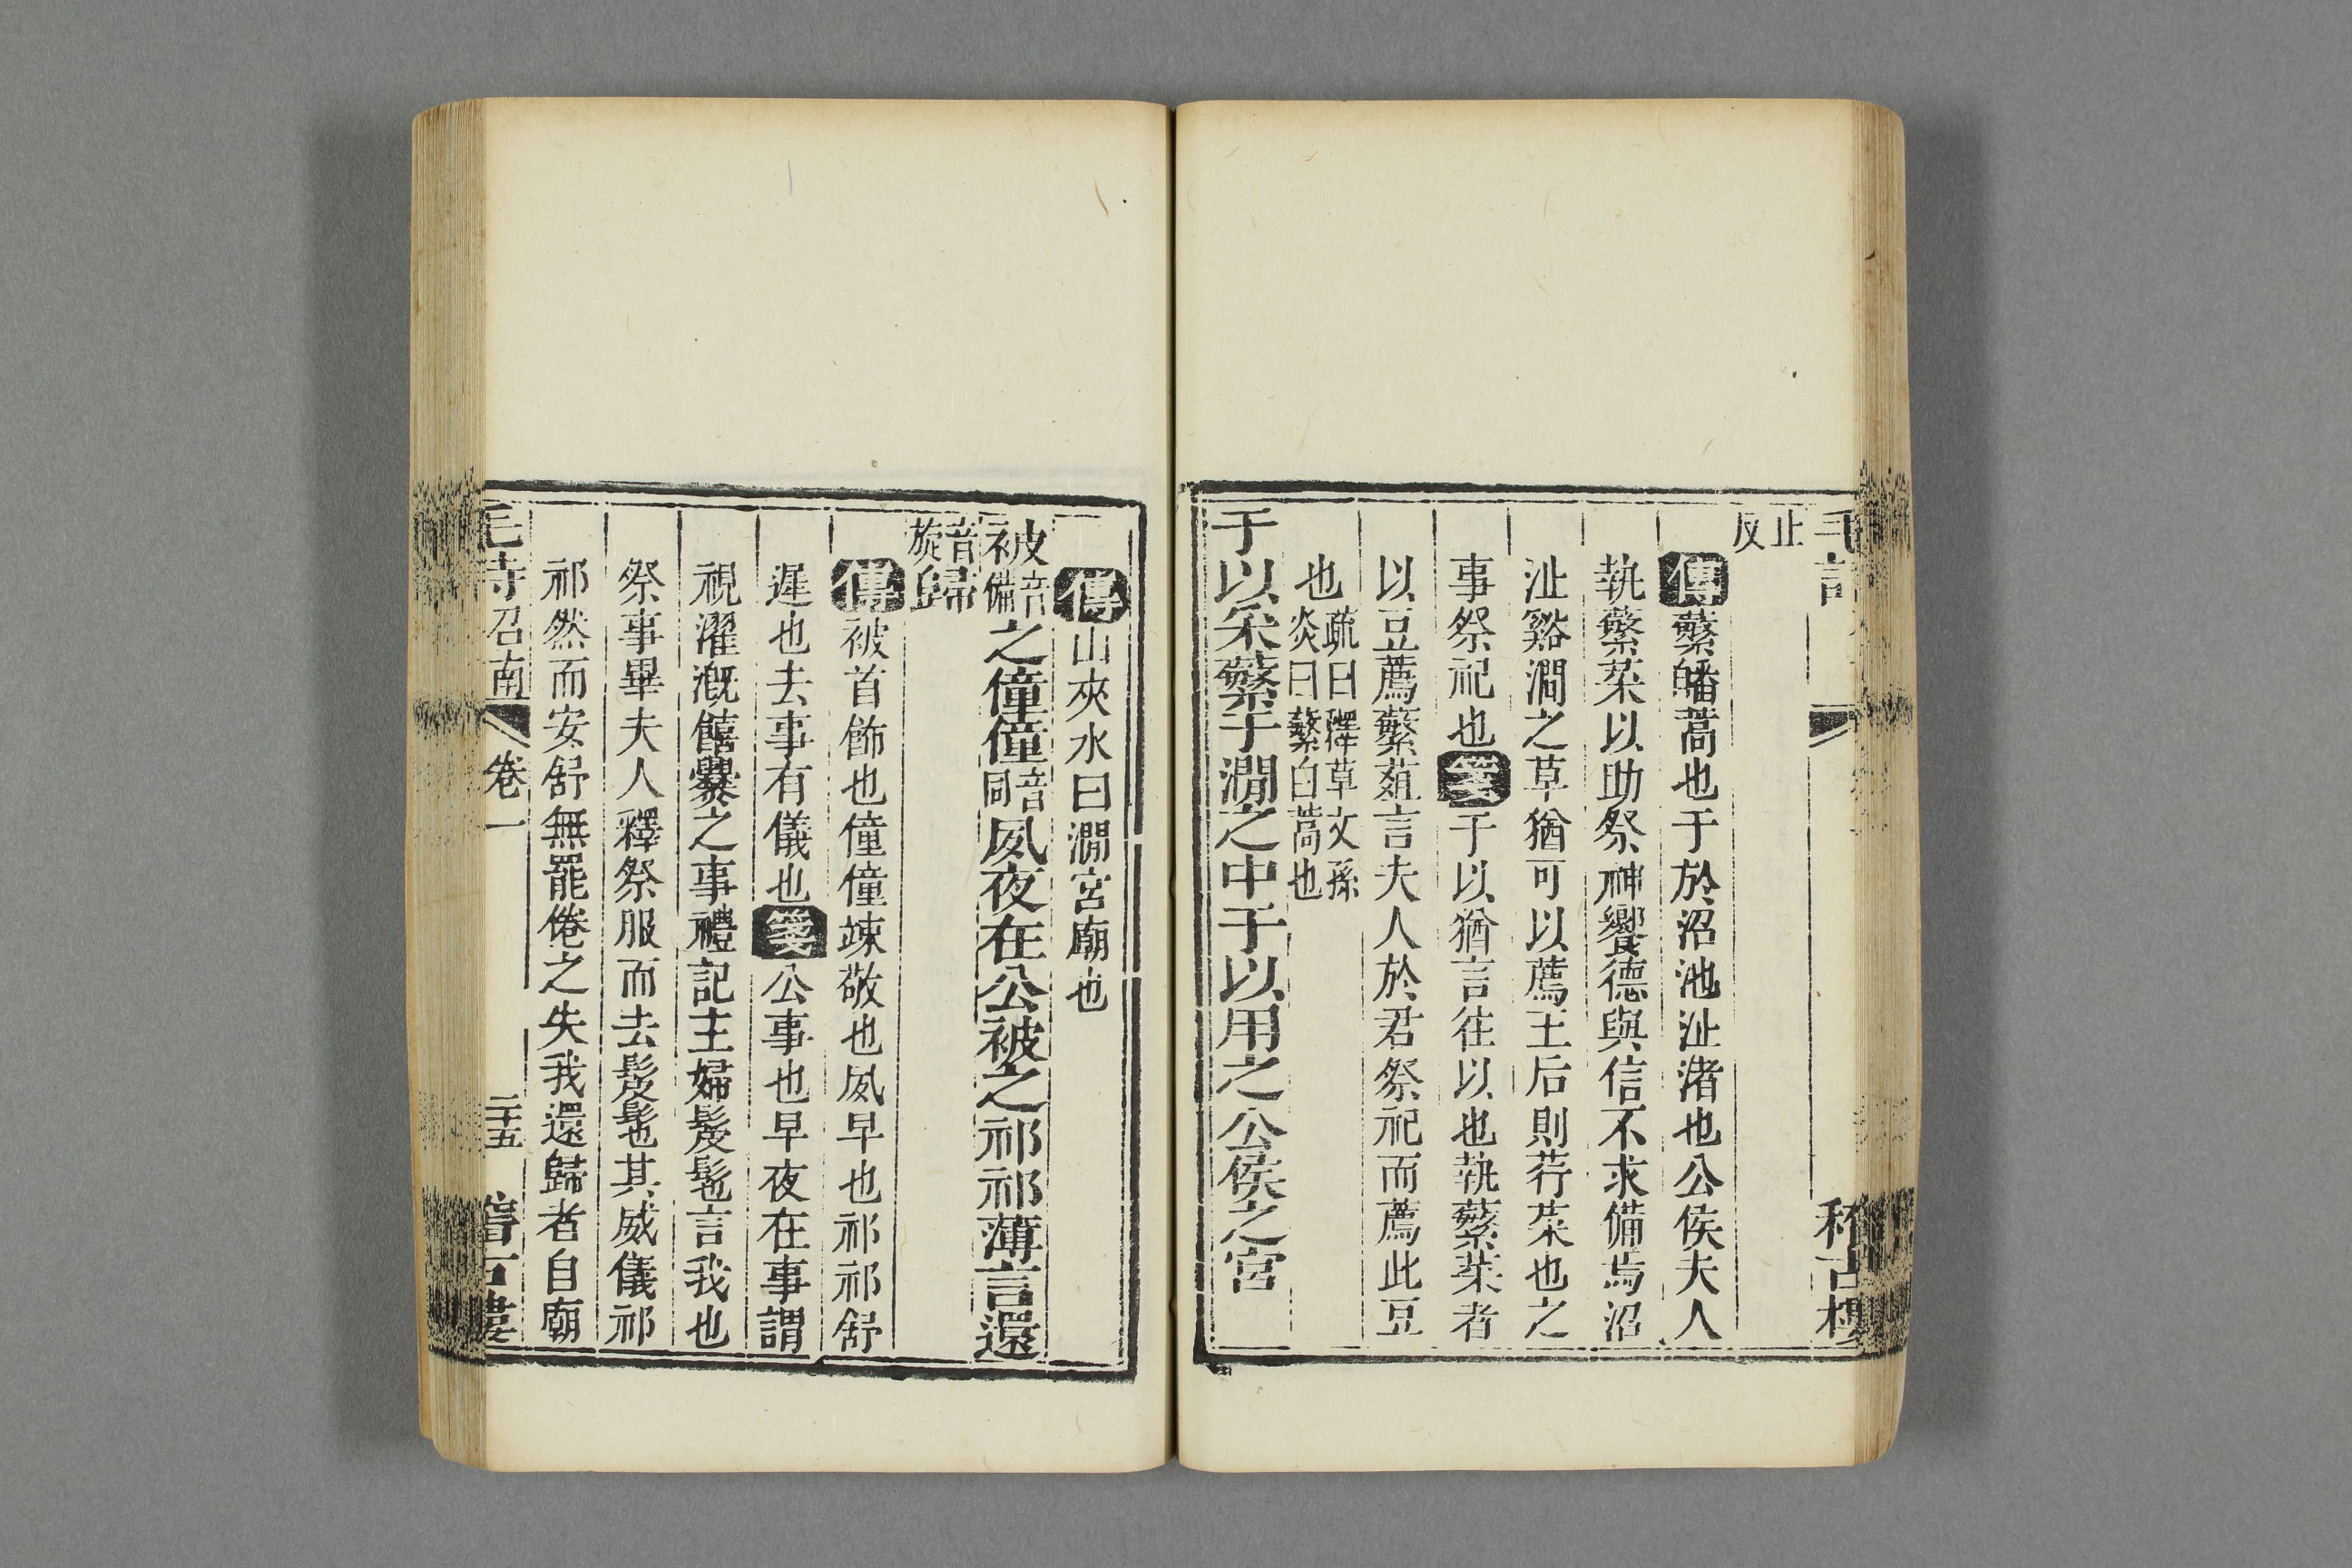 止反
傳蘩皤蒿也于於沼池沚渚也公侯夫人
執蘩菜以助祭神饗德與信不求備焉沼
沚谿澗之草猶可以薦王后則荇菜也之
事祭祀也箋于以猶言往以也執蘩菜者
以豆薦蘩葅言夫人於君祭祀而薦此豆
也疏曰釋草文孫炎曰蘩白蒿也
于以采蘩于澗之中于以用之公侯之宮
傳山夾水曰澗宮廟也
被音備之僮僮音同夙夜在公被之祁祁薄言還
音旋歸
傳被首飾也僮僮竦敬也夙早也祁祁舒
遲也去事有儀也箋公事也早夜在事謂
視濯漑饎爨之事禮記主婦髲髢言我也
祭事畢夫人釋祭服而去髲髢其威儀祁
祁然而安舒無罷倦之失我還歸者自廟
毛詩召南 卷一 二十五 稽古樓